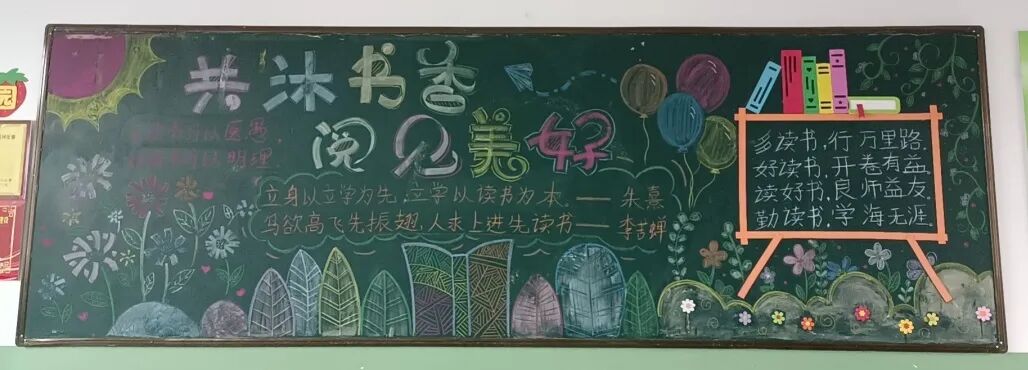 共沐书香
阅见美好
以医愚
明理
立身以立学为先,立学以读书为本。——朱熹
鸟欲高飞先振翅,人求上进先读书——李苦禅
多读书,行万里路.
好读书,开卷有益.
读好书,良师益友.
勤读书,学海无涯.